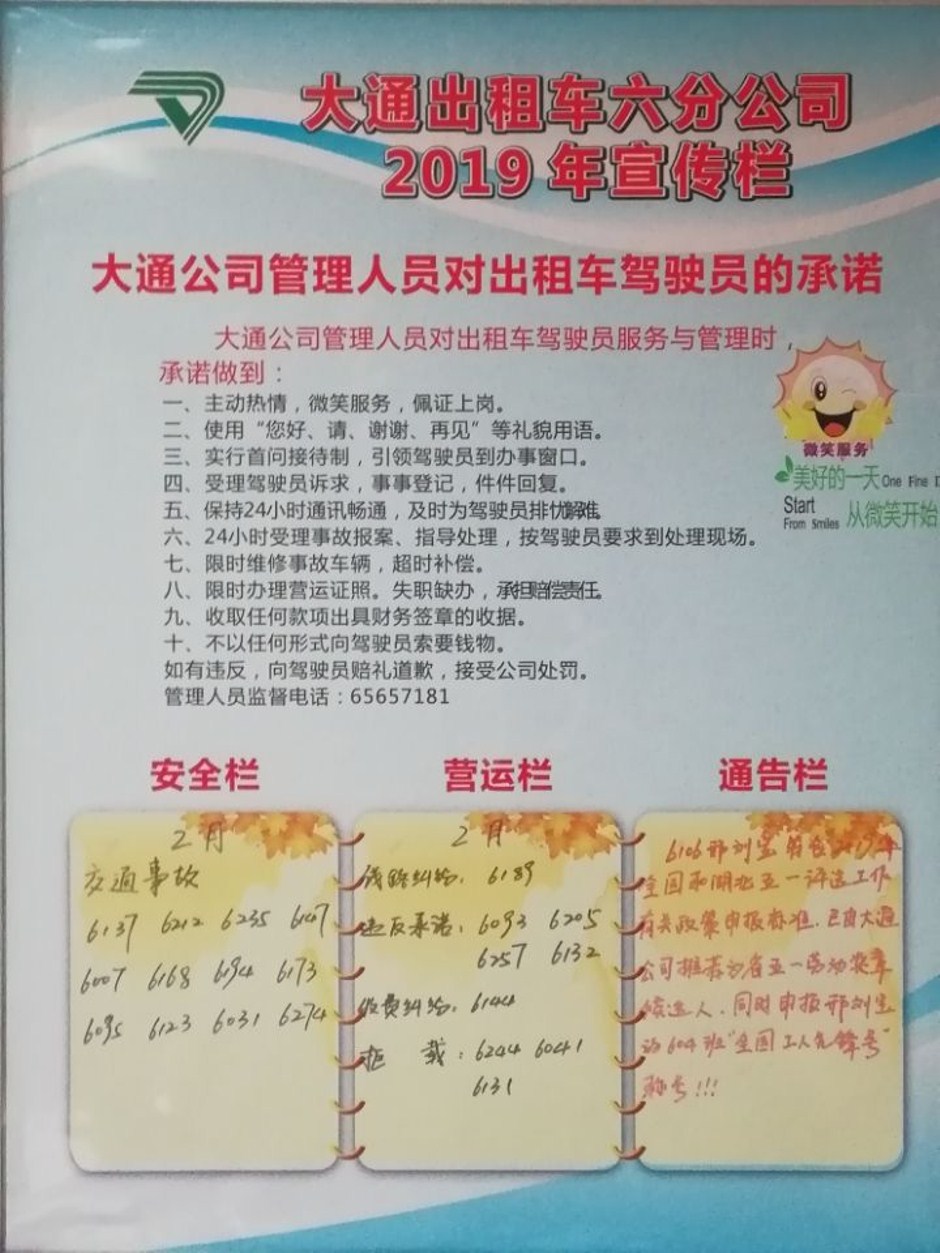 大通出租车六分公司
2019 年宣传栏
大通公司管理人员对出租车驾驶员的承诺
大通公司管理人员对出租车驾驶员服务与管理时，
承诺做到：
一、主动热情，微笑服务，佩证上岗。
二、使用“您好、请、谢谢、再见”等礼貌用语。
三、实行首问接待制，引领驾驶员到办事窗口。
四、受理驾驶员诉求，事事登记，件件回复。
五、保持24小时通讯畅通，及时为驾驶员排忧解难。
六、24小时受理事故报案、指导处理，按驾驶员要求到处理现场。
七、限时维修事故车辆，超时补偿。
八、限时办理营运证照。失职缺办，承担赔偿责任。
九、收取任何款项出具财务签章的收据。
十、不以任何形式向驾驶员索要钱物。
如有违反，向驾驶员赔礼道歉，接受公司处罚。
管理人员监督电话：65657181
微笑服务
美好的一天 One Fine D
Start
From Smiles 从微笑开始
安全栏
2月
交通事故
6137 6212 6235 6147
6007 6168 6194 6173
6095 6123 6031 6274
营运栏
2月
线路纠纷：6189
违反承诺：6093 6205
6257 6132
收费纠纷：6144
拒载：6244 6041
6131
通告栏
6106邢刘宝 2019年
全国和湖北五一评选工作
有关政策申报标准，已由大通
公司推荐为省五一劳动奖章
候选人．同时申报邢刘宝
的604班“全国工人先锋号”
称号!!!